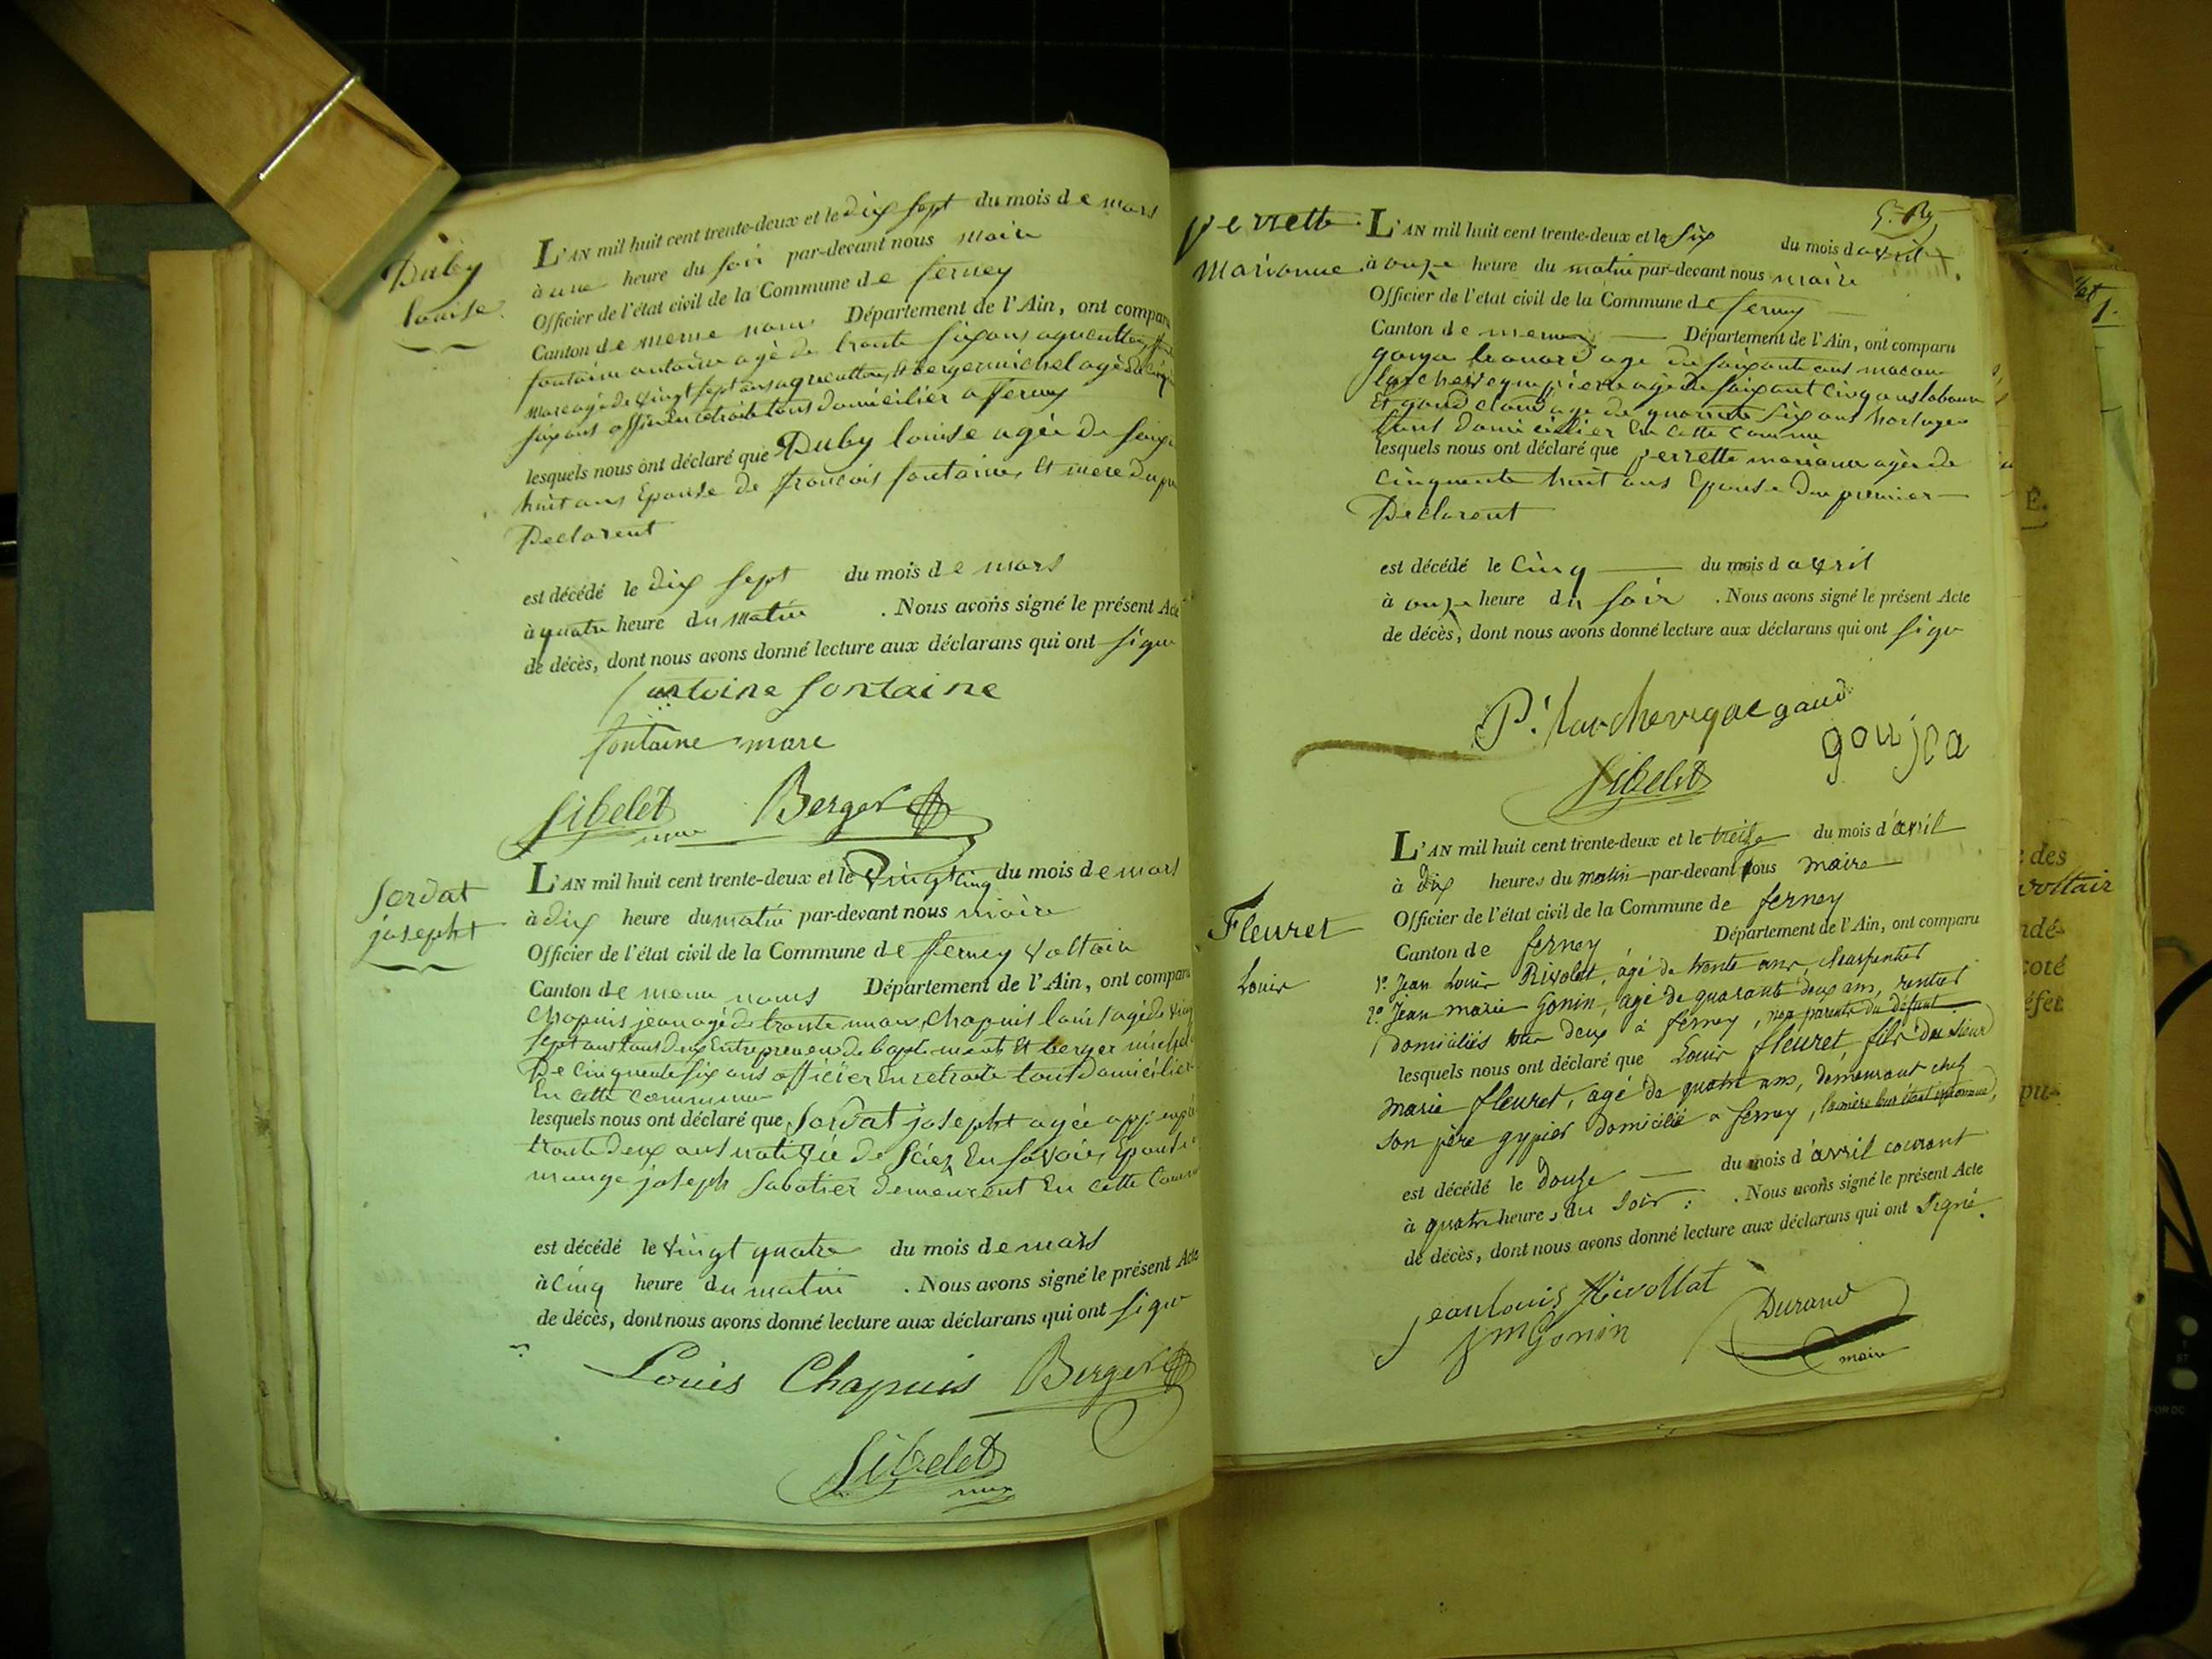 Duby
louise
L'AN mil huit cent trente-deux et le dix sept du mois de mars
à une heure du soir par-devant nous maire
Officier de l'état civil de la Commune de ferney
Canton de meme nom Département de l'Ain, ont comparu
fontaine antoine agé de trante six ans agriculteur
marc agé de vingt sept ans agriculteur, et berger michel agé de cinq
six ans officier en retraite tous domicilier a ferney
lesquels nous ont déclaré que Duby louise agée de soix
huit ans Epouse de francois fontaine, Et mere du pr
Declarent
est décédé le dix sept du mois de mars
à quatre heure du matin . Nous avons signé le présent Acte
de décès, dont nous avons donné lecture aux déclarans qui ont signe
antoine fontaine
fontaine marc
Sibelet Berger
maire
Sordat
josepht
L'AN mil huit cent trente-deux et le vingt cinq du mois de mars
à dix heure du matin par-devant nous maire
Officier de l'état civil de la Commune de ferney Voltair
Canton de meme noms Département de l'Ain, ont comparu
Chapuis jean agé de trante neuf, Chapuis louis agé de ving
sept ans tous deux Entrepreneur de et berger michel
De Cinquente six ans officier En retraite tous Domicilier
En cette commune
lesquels nous ont déclaré que Sordat josepht agée
trante deux ans native de Sciez En Savoie, Epouse
joseph Sabatier demeurent En cette Comm
est décédé le vingt quatre du mois de mars
à cinq heure du matin . Nous avons signé le présent Acte
de décès, dont nous avons donné lecture aux déclarans qui ont signe
Louis Chapuis Berger
Sibelet
maire
perrette
Marianne
L'AN mil huit cent trente-deux et le six du mois d avril
à onze heure du matin par-devant nous maire
Officier de l'état civil de la Commune de ferney
Canton de meme Département de l'Ain, ont comparu
gouja leonard age de soixante ans macon
larcheveque pierre agé de soixant cinq ans laboure
Et gaud claud age de quarente six ans horloger
tous domicilier En cette commune
lesquels nous ont déclaré que perrette mariane agée de
Cinquente huit ans Epouse du premier
Declarent
est décédé le cinq du mois d avril
à onze heure du soir . Nous avons signé le présent Acte
de décès, dont nous avons donné lecture aux déclarans qui ont signe
P. larcheveque gaud
goujea
Sibelet
Fleuret
Louis
L'AN mil huit cent trente-deux et le treize du mois d'avril
à dix heures du matin par-devant nous maire
Officier de l'état civil de la Commune de ferney
Canton de ferney Département de l'Ain, ont comparu
1º Jean Louis Rivolat, âgé de trente ans, charpentier
2º Jean marie Gonin, âgé de quarante deux ans, rentier
domiciliés tous deux à ferney, non parents du défunt
lesquels nous ont déclaré que Louis fleuret, fils du sieur
Marie fleuret, agé de quatre ans, demeurant chez
son père gypier domicilié a ferney, la mère leur étant inconnue,
est décédé le douze du mois d'avril courant
à quatre heures du soir : . Nous avons signé le présent Acte
de décès, dont nous avons donné lecture aux déclarans qui ont signé.
jean louis Rivollat
jm Gonin Durand
maire